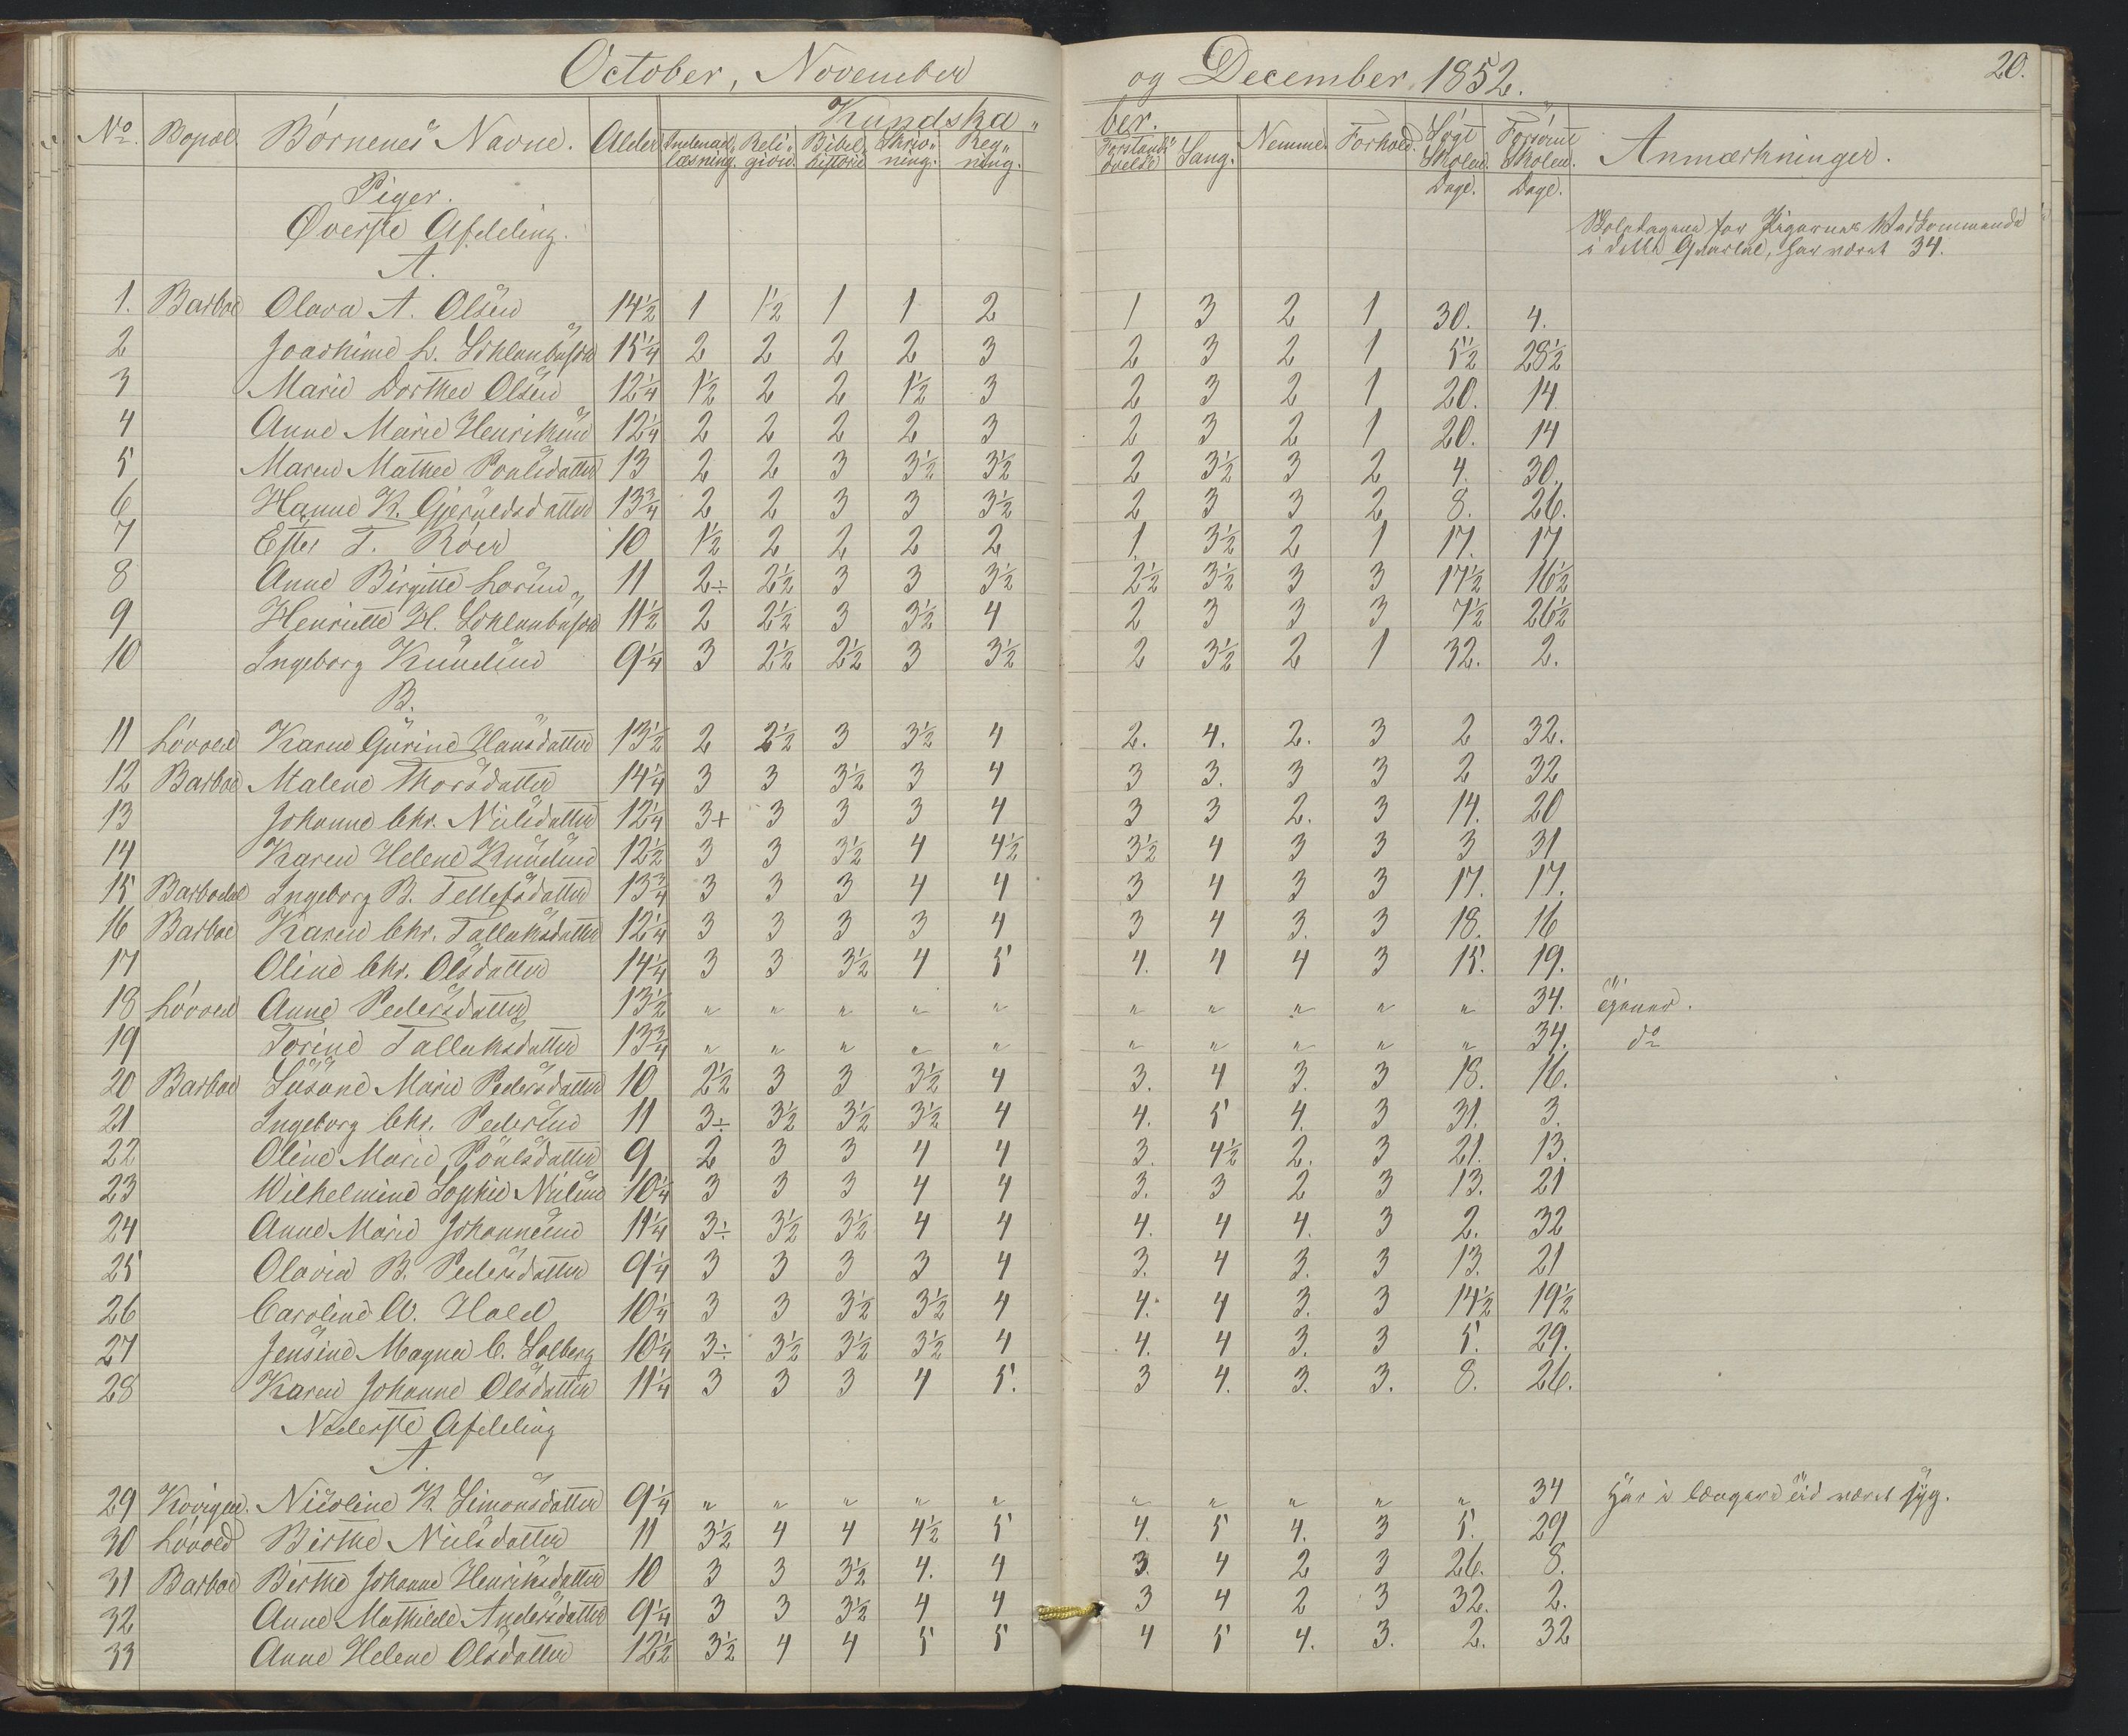 October, November og December 1852. 20.
No. Bopæl. Børnenes Navne. Alder Indenad- læsning. Reli- gion. Bibel- historie Skriv- ning. Reg- ning. Forstands- øvelse Sang. Nemme. Forhold. Søgt Skolen. Dage. Forsømt Skolen. Dage. Anmærkninger.
Kundska- ber.
Piger.
Øverste Afdeling.
A.
Skoledagene for Pigernes Vedkommende
i dette Quartal, har været 34.
1. Barboe Olava A. Olsen 14½ 1 1½ 1 1 2 1 3 2 1 30. 4.
2 Joachime L. 15¼ 2 2 2 2 3 2 3 2 1 5½ 28½
3 Marie Dorthea Olsen 12¼ 1½ 2 2 1½ 3 2 3 2 1 20. 14
4 Anne Marie Henriksen 12¼ 2 2 2 2 3 2 3 2 1 20. 14
5 Maren Mathea Poulsdatter 13 2 2 3 3½ 3½ 2 3½ 3 2 4. 30.
6 Hanne K. Gjeruldsdatter 13¾ 2 2 3 3 3½ 2 3 3 2 8. 26.
7 Ester T. Roer 10 1½ 2 2 2 2 1 3½ 2 1 17. 17
8 Anne Birgitte Larsen 11 2÷ 2½ 3 3 3½ 2½ 3½ 3 3 17½ 16½
9 Henriette H. 11½ 2 2½ 3 3½ 4 2 3 3 3 7½ 26½
10 Ingeborg Knudsen 9¼ 3 2½ 2½ 3 3½ 2 3½ 2 1 32. 2.
B.
11 Løvold Karen Gurine Hansdatter 13½ 2 2½ 3 3½ 4 2. 4. 2. 3 2 32.
12 Barboe Malene Thorsdatter 14¼ 3 3 3½ 3 4 3 3. 3 3 2 32
13 Johanne Chr. Nielsdatter 12¼ 3+ 3 3 3 4 3 3 2. 3 14. 20
14 Karen Helene Knudsen 12½ 3 3 3½ 4 4½ 3½ 4 3 3 3 31
15 Barbodal Ingeborg B. Tellefsdatter 13¾ 3 3 3 4 4 3 4 3 3 17. 17.
16 Barboe Karen Chr. Tallaksdatter 12¼ 3 3 3 3 4 3 4 3. 3 18. 16
17 Oline Chr. Olsdatter 14¼ 3 3 3½ 4 5 4. 4 4 3 15. 19.
18 Løvold Anne Pedersdatter 13½ " " " " " " " " " " 34.
19 Torine Tallaksdatter 13¾ " " " " " " " " " " 34. do
20 Barboe Susane Marie Pedersdatter 10 2½ 3 3 3½ 4 3. 4 3. 3 18. 16.
21 Ingeborg Chr. Pedersen 11 3÷ 3½ 3½ 3½ 4 4. 5 4. 3 31. 3.
22 Oline Marie Poulsdatter 9 2 3 3 4 4 3. 4½ 2. 3 21. 13.
23 Wilhelmine Sophie Nielsen 10¼ 3 3 3 4 4 3. 3 2 3 13. 21
24 Anne Marie Johannesen 11¼ 3÷ 3½ 3½ 4 4 4. 4 4. 3 2. 32
25 Olavia B. Pedersdatter 9¼ 3 3 3 3 4 3. 4 3. 3 13. 21
26 Caroline W. Hald 10¼ 3 3 3½ 3½ 4 4. 4 3. 3 14½ 19½
27 Jensine Magnea C. Solberg 10¼ 3÷ 3½ 3½ 3½ 4 4. 4 3. 3 5. 29.
28 Karen Johanne Olsdatter 11¼ 3 3 3 4 5. 3 4. 3. 3. 8. 26.
Nederste Afdeling
A.
29 Kovigen. Nicoline K Simonsdatter 9¼ " " " " " " " " " " 34 Har i længere tid været syg.
30 Løvold Birthe Nielsdatter 11 3½ 4 4 4½ 5 4. 5 4. 3 5. 29
31 Barboe Birthe Johanne Henriksdatter 10 3 3 3½ 4. 4 3. 4 2 3 26. 8.
32 Anne Mathilde Andersdatter 9¼ 3 3 3½ 4 4 3 4 2 3 32. 2.
33 Anne Helene Olsdatter 12½ 3½ 4 4 5 5 4 5 4. 3. 2. 32